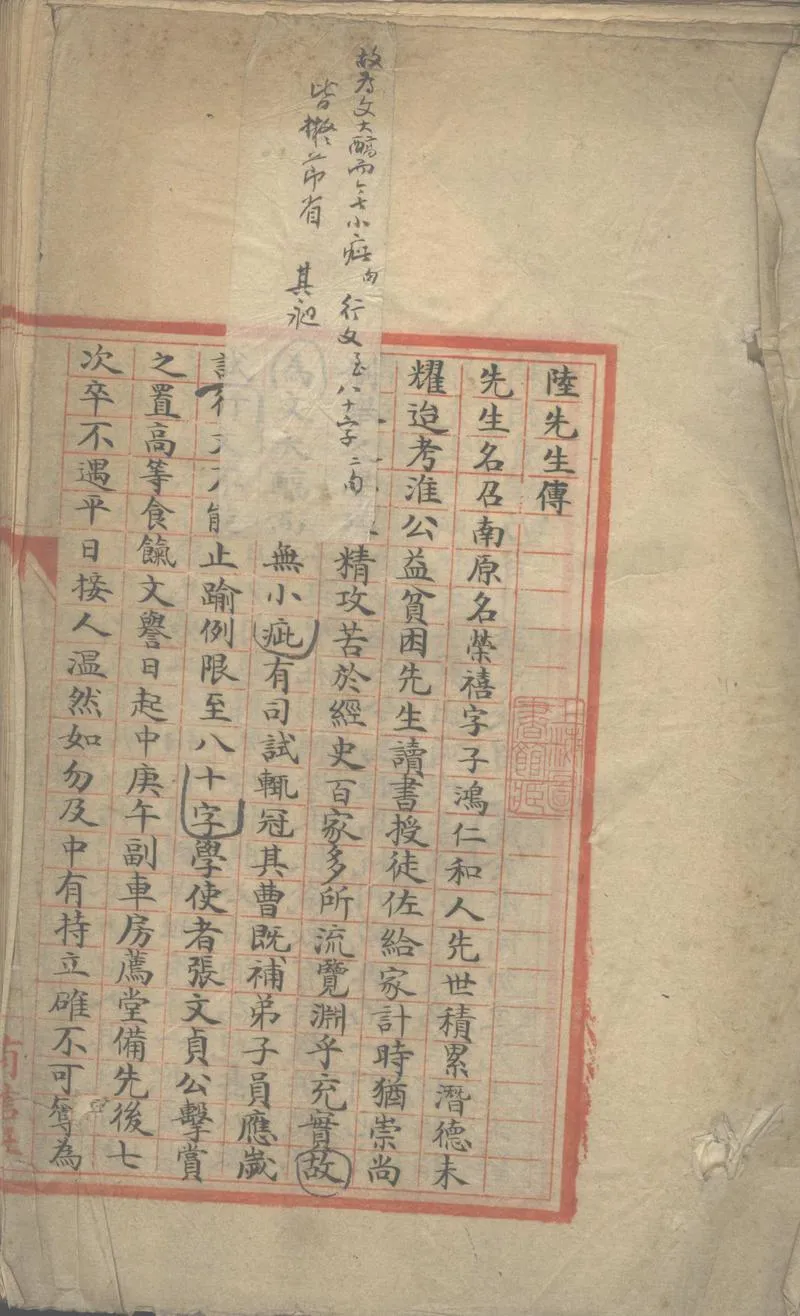 故為文大醇而無小疵句行文至八十字二句
皆擬節省 其昶
陸先生傳
先生名召南原名榮禧字子鴻仁和人先世積累潛德未
耀迨考淮公益貧困先生讀書授徒佐給家計時猶崇尚
精攻苦於經史百家多所流覽淵乎充實故
為文大醇而無小疵有司試輒冠其曹既補弟子員應歲
能止踰例限至八十字學使者張文貞公擊賞
之置高等食餼文譽日起中庚午副車房薦堂備先後七
次卒不遇平日接人溫然如勿及中有持立確不可奪為